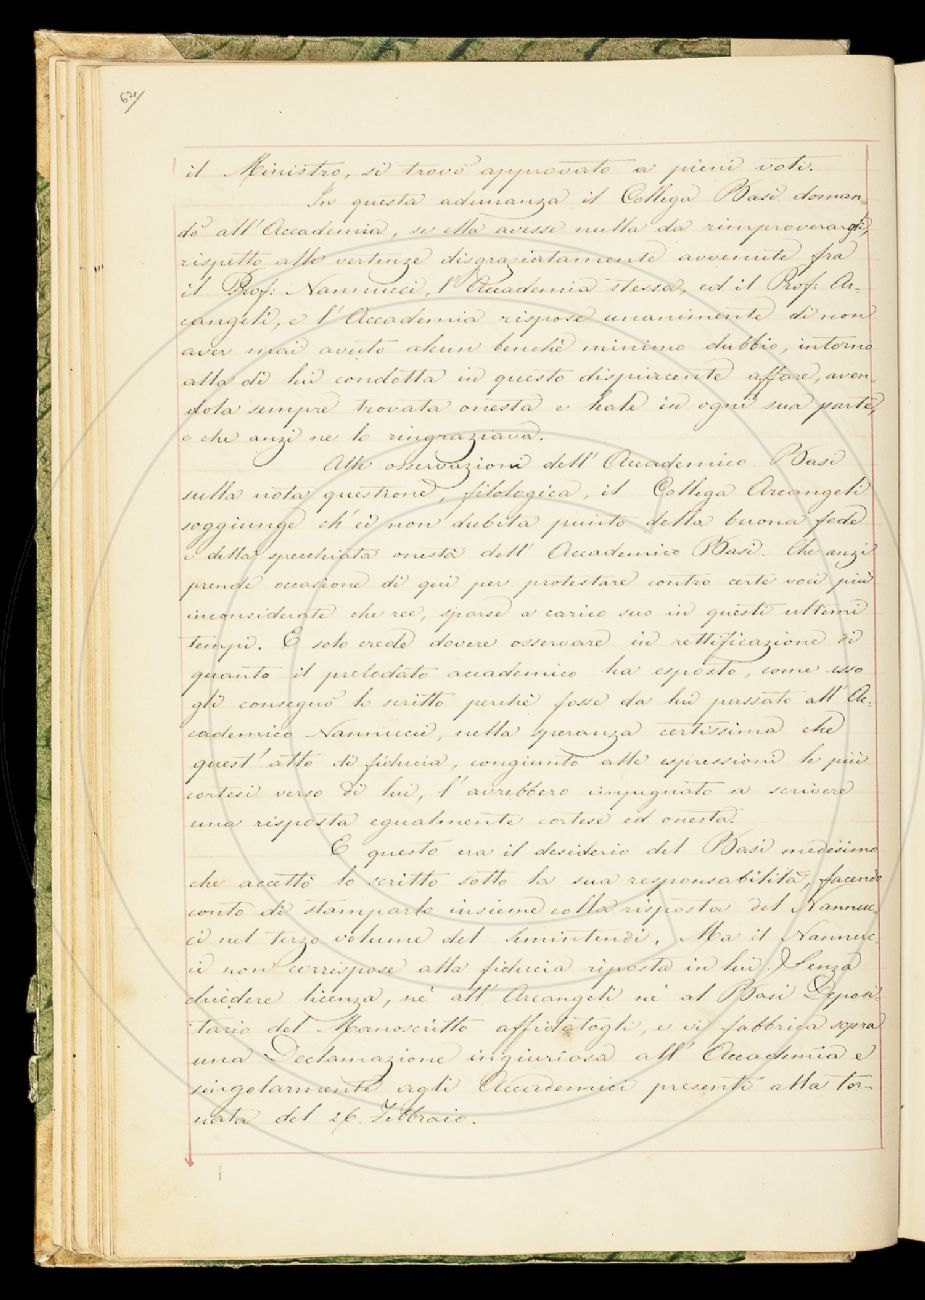 62/
il Ministro, si trovò approvato a pieni voti.
In questa adunanza il Collega Basi doman-
dò all'Accademia, se ella avesse nulla da rimproverargli,
rispetto alle vertenze disgraziatamente avvenute fra
il Prof: Nannucci, l'Accademia stessa, ed il Prof: Ar-
cangeli, e l'Accademia rispose unanimente di non
aver mai avuto alcun benchè minimo dubbio, intorno
alla di lui condotta in questo dispiacente affare, aven-
dola sempre trovata onesta e leale in ogni sua parte,
e che anzi ne lo ringraziava.
Alle osservazioni dell'Accademico Basi
sulla nota questione, filologica, il Collega Arcangeli
soggiunge ch'ei non dubita punto della buona fede
e della specchiata onestà dell'Accademico Basi. Che anzi
prende occasione di qui per protestare contro certe voci più
inconsiderate che ree, sparse a carico suo in questi ultimi
tempi. E solo crede dovere osservare in rettificazione di
quanto il prelodato accademico ha esposto, come esso
gli consegnò lo scritto perchè fosse da lui passato all'Ac-
cademico Nannucci, nella speranza certissima che
quest'atto di fiducia, congiunto alle espressioni le più
cortesi verso di lui, l'avrebbero impegnato a scrivere
una risposta egualmente cortese ed onesta.
E questo era il desiderio del Basi medesimo
che accettò lo scritto sotto la sua responsabilità, facendo
conto di stamparlo insieme colla risposta del Nannuc-
ci nel terzo volume del Simintendi. Ma il Nannuc-
ci non corrispose alla fiducia riposta in lui. Senza
chiedere licenza, nè all'Arcangeli nè al Basi Deposi-
tario del Manoscritto affidatogli, e vi fabbrica sopra
una Declamazione ingiuriosa all'Accademia e
singolarmente agli Accademici presenti alla tor-
nata del 26 Febbraio.